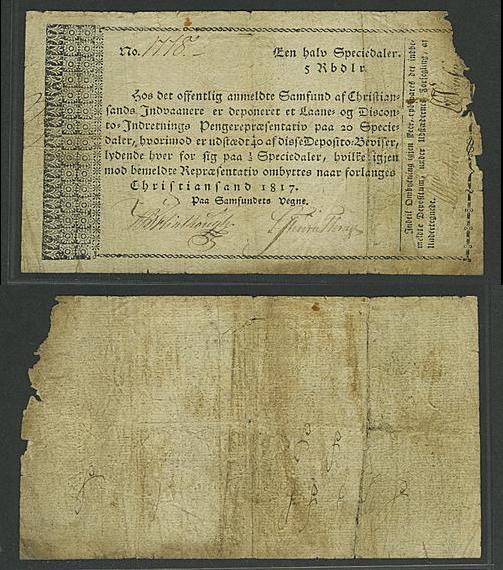 No. 1778
Een halv Speciedaler.
5 Rbdlr
Hos det offentlig anmeldte Samfund af Christian-
sands Indvaanere er deponeret et Laane- og Discon-
to-Indretnings Pengerepræsentativ paa 20 Specie-
daler, hvorimod er udstædt 40 af disse Deposito-Beviser,
lydende hver for sig paa ½ Speciedaler, hvilke igjen
mod bemeldte Repræsentativ ombyttes naar forlanges
Christiansand 1817.
Paa Samfundets Vegne.
Indtil Ombytning igjen skeer, opbevares det indbe-
meldte Depositum, under Udstædernes Forsegling, af
Undertegnede.